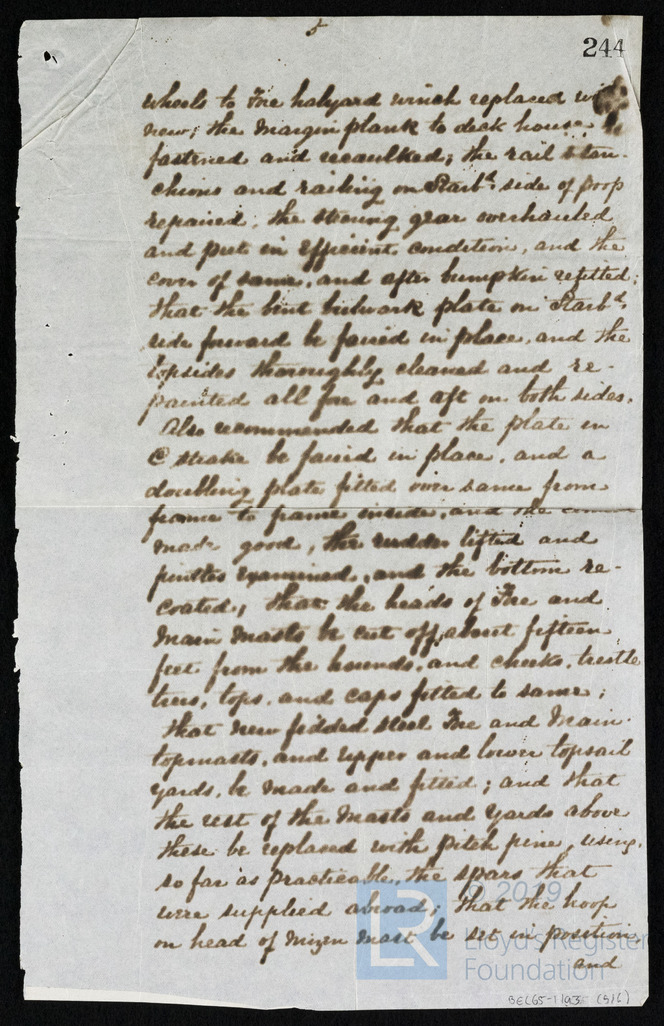 5
244
wheels to Fore halyard winch replaced with
new; the margin plank to deck house
fastened and recaulked; the rail stan-
chions and railing on Starbd. side of poop
repaired; the steering gear overhauled
and put in efficient condition, and the
cover of same, and after bumpkin refitted;
that the bent bulwark plate on Starbd.
side forward be faired in place, and the
topsides thoroughly cleaned and re-
painted all fore and aft on both sides.
Also recommended that the plate in
C strake be faired in place, and a
doubling plate fitted over same from
frame to frame inside, and the
made good, the rudder lifted and
pintles examined, and the bottom re-
coated; that the heads of Fore and
Main Masts be cut off, about fifteen
feet from the hounds, and cheeks, trestle
trees, tops, and caps fitted to same;
that new fidded steel Fore and Main
topmasts, and upper and lower topsail
yards, be made and fitted; and that
the rest of the Masts and Yards above
these be replaced with pitch pine, using,
so far as practicable, the spars that
were supplied abroad; that the hoop
on head of Mizen Mast be set in position,
and
LR
© 2019
Lloyd's Register
Foundation
BEC65-1193 (5/6)